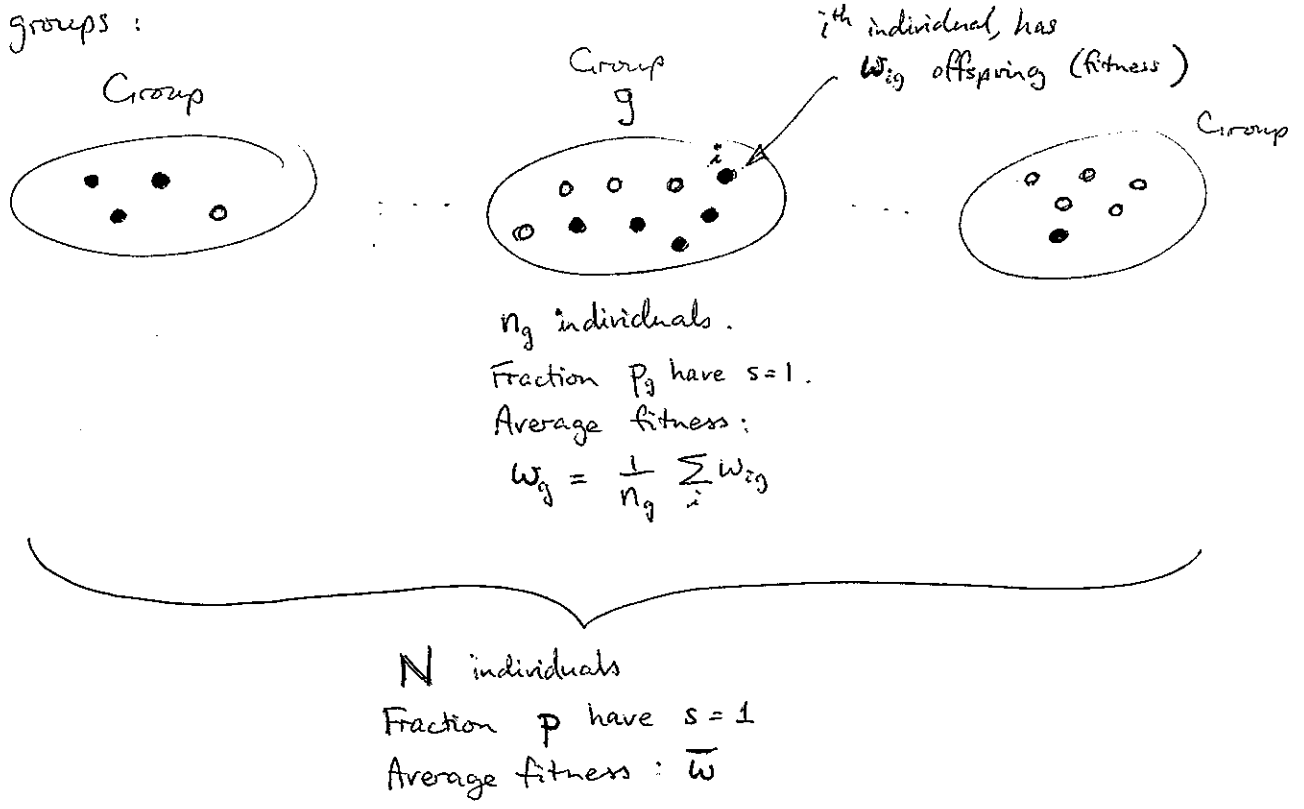 groups :
i^th individual, has
w_ig offspring (fitness)
Group
Group
g
Group
i
n_g individuals.
Fraction p_g have s=1.
Average fitness:
w_g = 1/n_g ∑_i w_ig
N individuals
Fraction p have s = 1
Average fitness : w̄